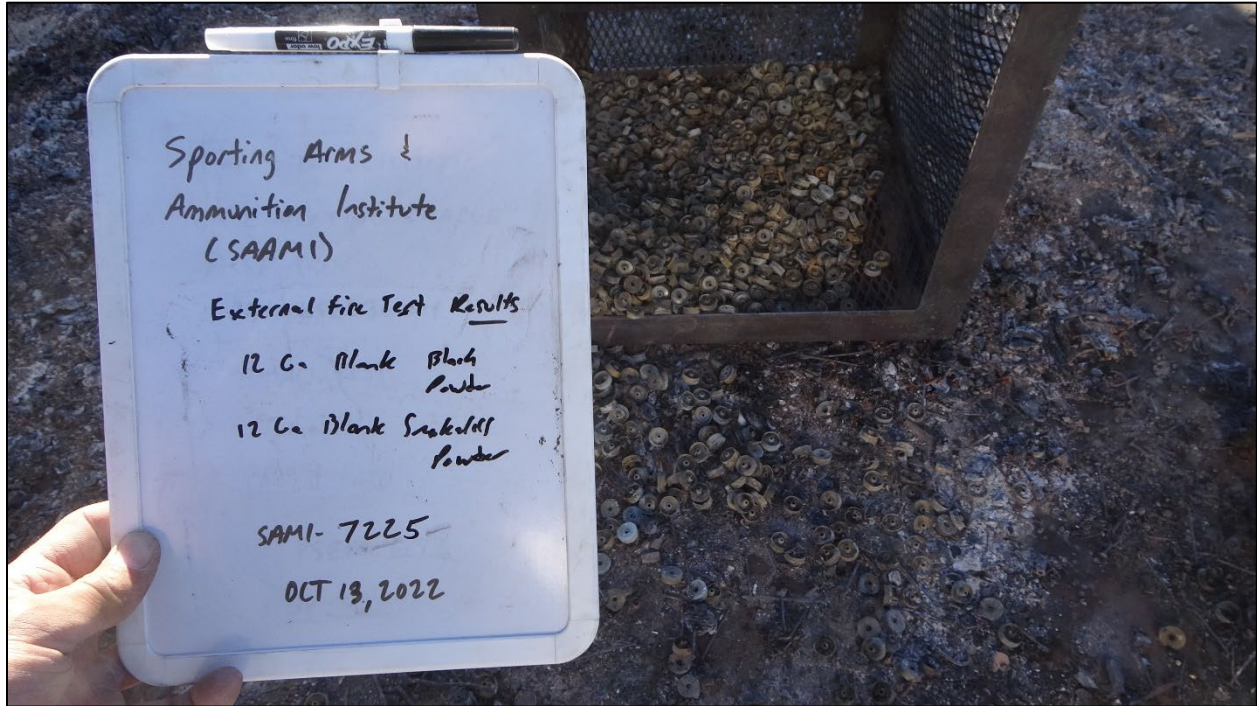 EXPO
low odor
fine
Sporting Arms &
Ammunition Institute
(SAAMI)
External Fire Test Results
12 Ga Blank Black
Powder
12 Ga Blank Smokeless
Powder
SAMI- 7225
OCT 13, 2022